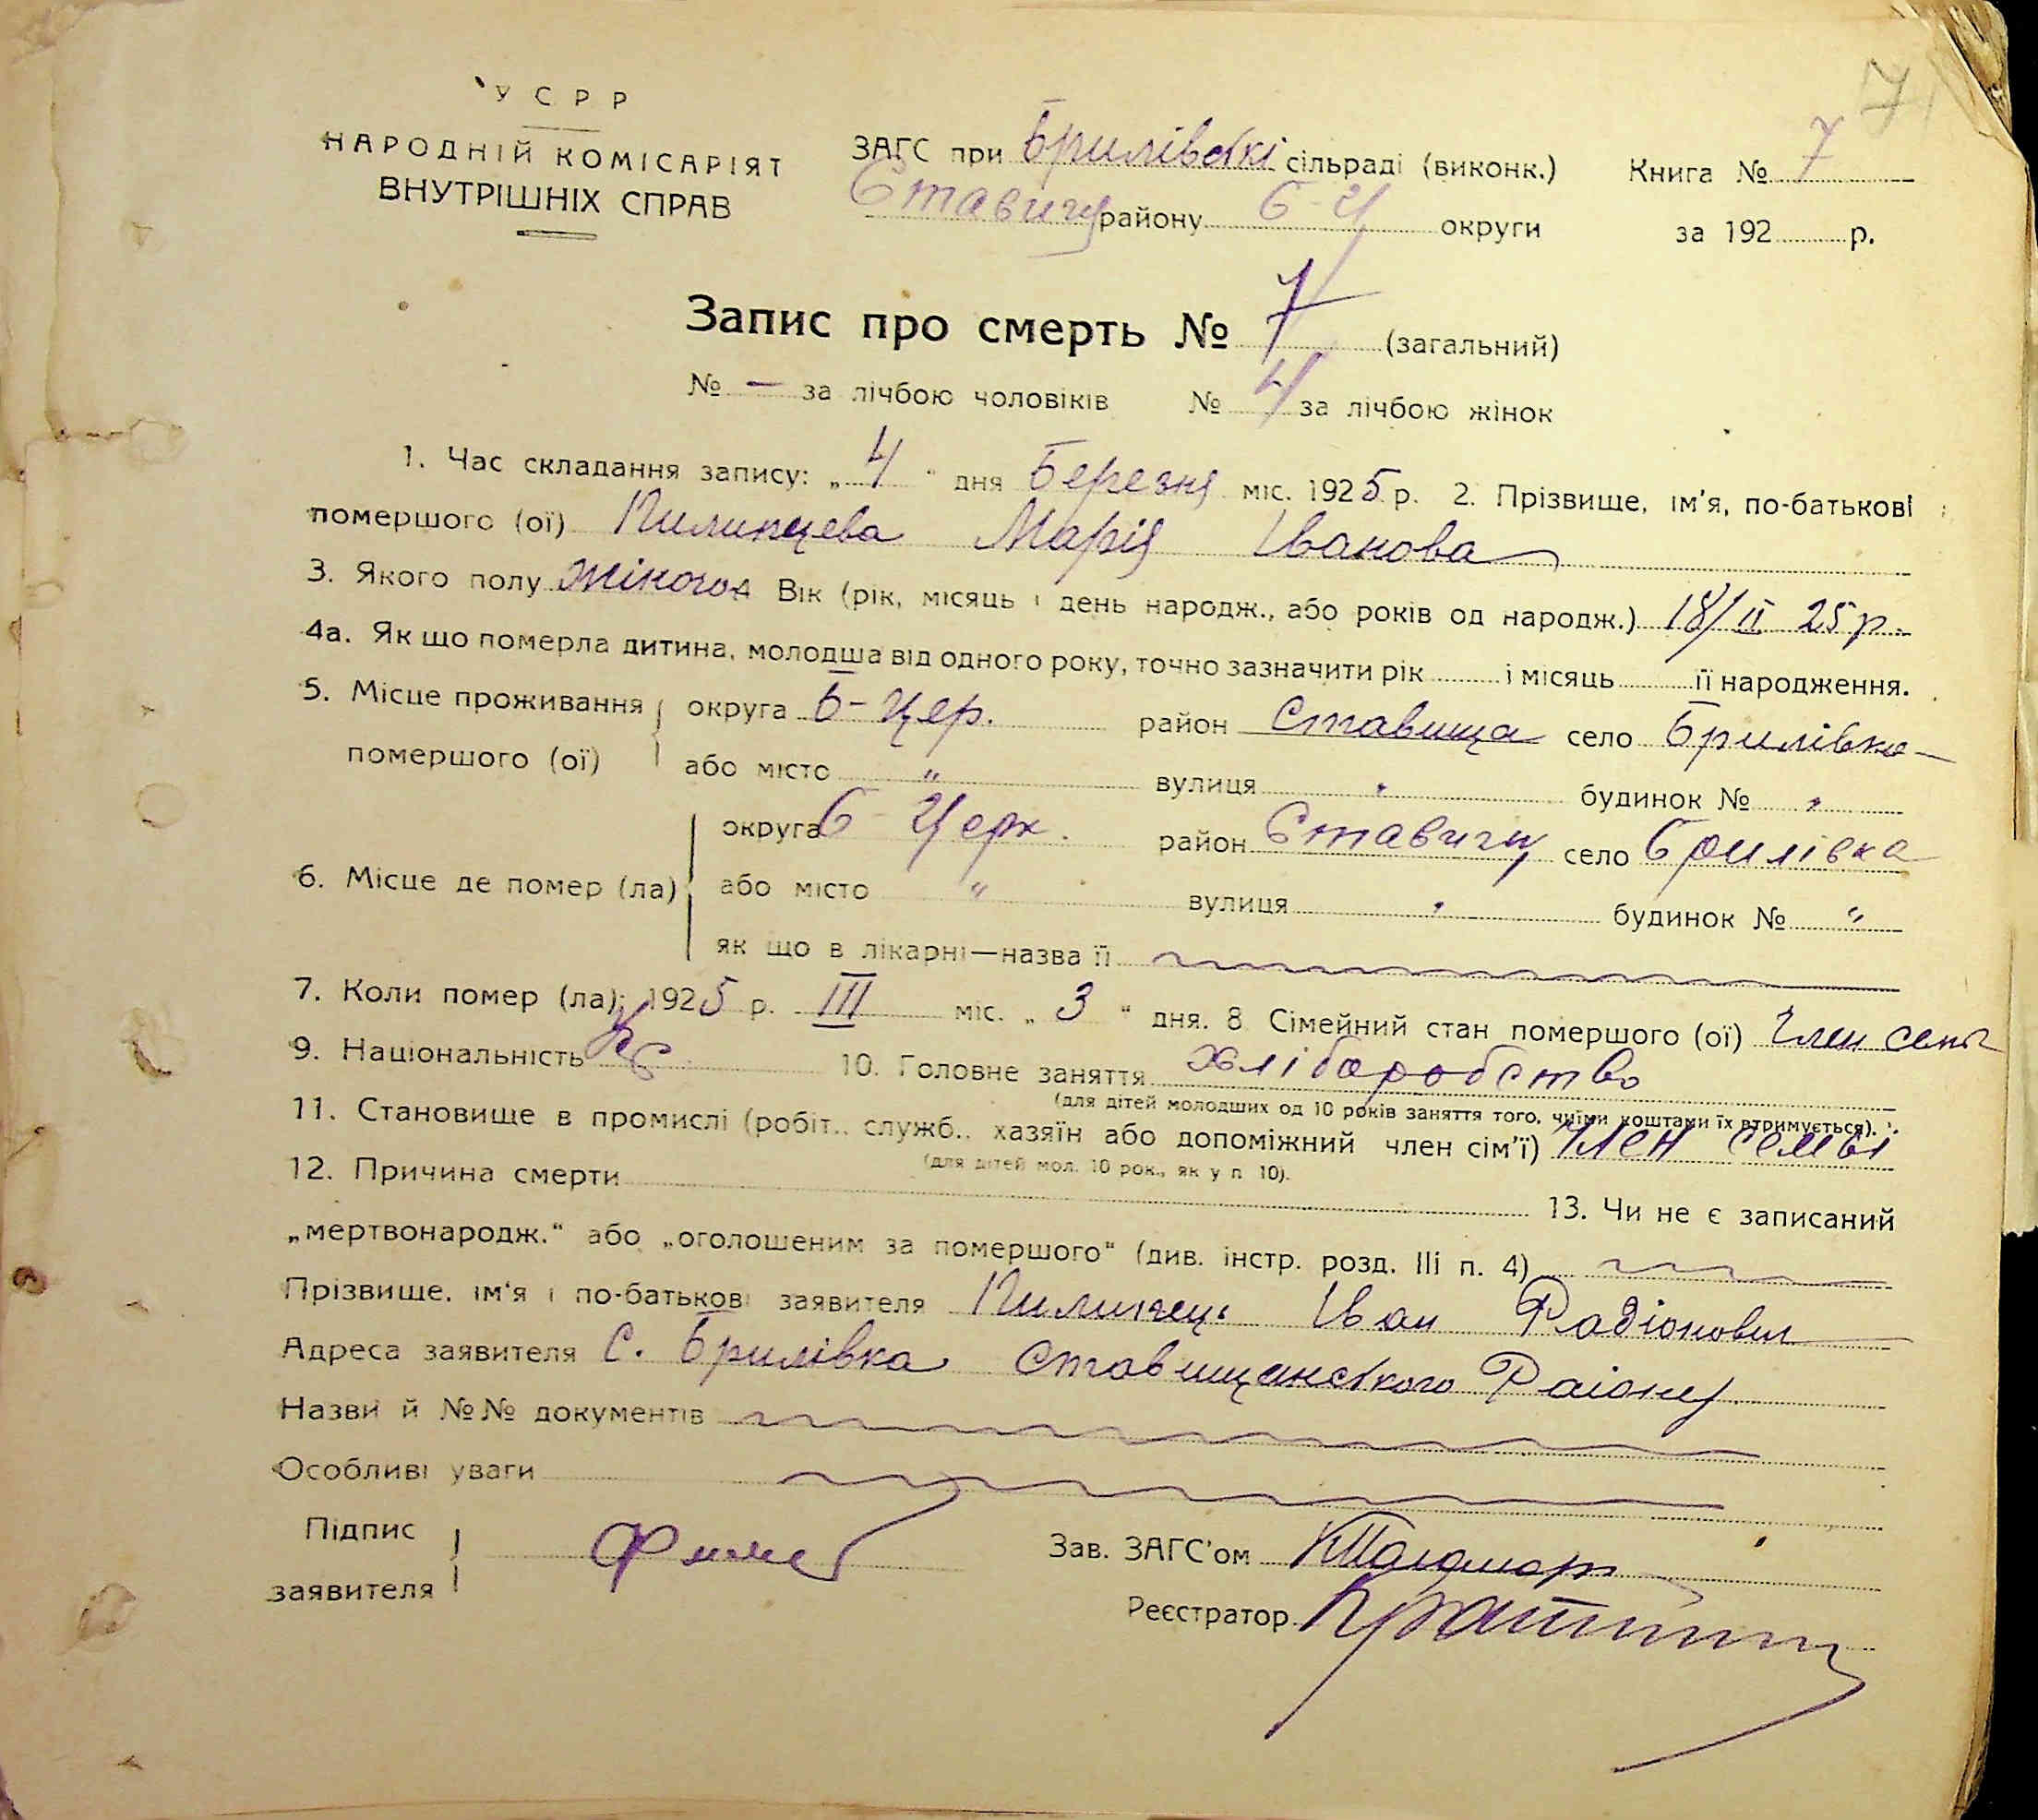 7
У С Р Р
НАРОДНІЙ КОМІСАРІЯТ
ВНУТРІШНІХ СПРАВ
ЗАГС при Брилівській сільраді (виконк.) Книга № 7
Ставищ району Б-Ц округи за 192 р.
Запис про смерть № 7 (загальний)
№ — за лічбою чоловіків № 4 за лічбою жінок
1. Час складання запису: „ 4 “ дня Березня міс. 1925 р. 2. Прізвище, ім'я, по-батькові
помершого (ої) Пилипцева Марія Іванова
3. Якого полу жіного 4 Вік (рік, місяць і день народж., або років од народж.) 18/II 25 р.
4а. Як що померла дитина, молодша від одного року, точно зазначити рік і місяць її народження.
5. Місце проживання округа Б-Цер. район Ставища село Брилівка
помершого (ої) або місто " вулиця " будинок № "
округа Б-Церк. район Ставищ село Брилівка
6. Місце де помер (ла) або місто " вулиця " будинок № "
як що в лікарні—назва її
7. Коли помер (ла): 1925 р. III міс. „ 3 “ дня. 8 Сімейний стан помершого (ої) Член семі
9. Національність 10. Головне заняття хліборобство
(для дітей молодших од 10 років заняття того, чиїми коштами їх втримується).
11. Становище в промислі (робіт., служб., хазяїн або допоміжний член сім'ї) член семьі
(для дітей мол. 10 рок., як у п 10).
12. Причина смерти 13. Чи не є записаний
„мертвонародж.“ або „оголошеним за помершого“ (див. інстр. розд. III п. 4)
Прізвище, ім'я і по-батькові заявителя Пилипець Іван Радіонович
Адреса заявителя С. Брилівка Ставищанського Раіону
Назви й №№ документів
Особливі уваги
Підпис
заявителя
Зав. ЗАГС'ом
Реєстратор